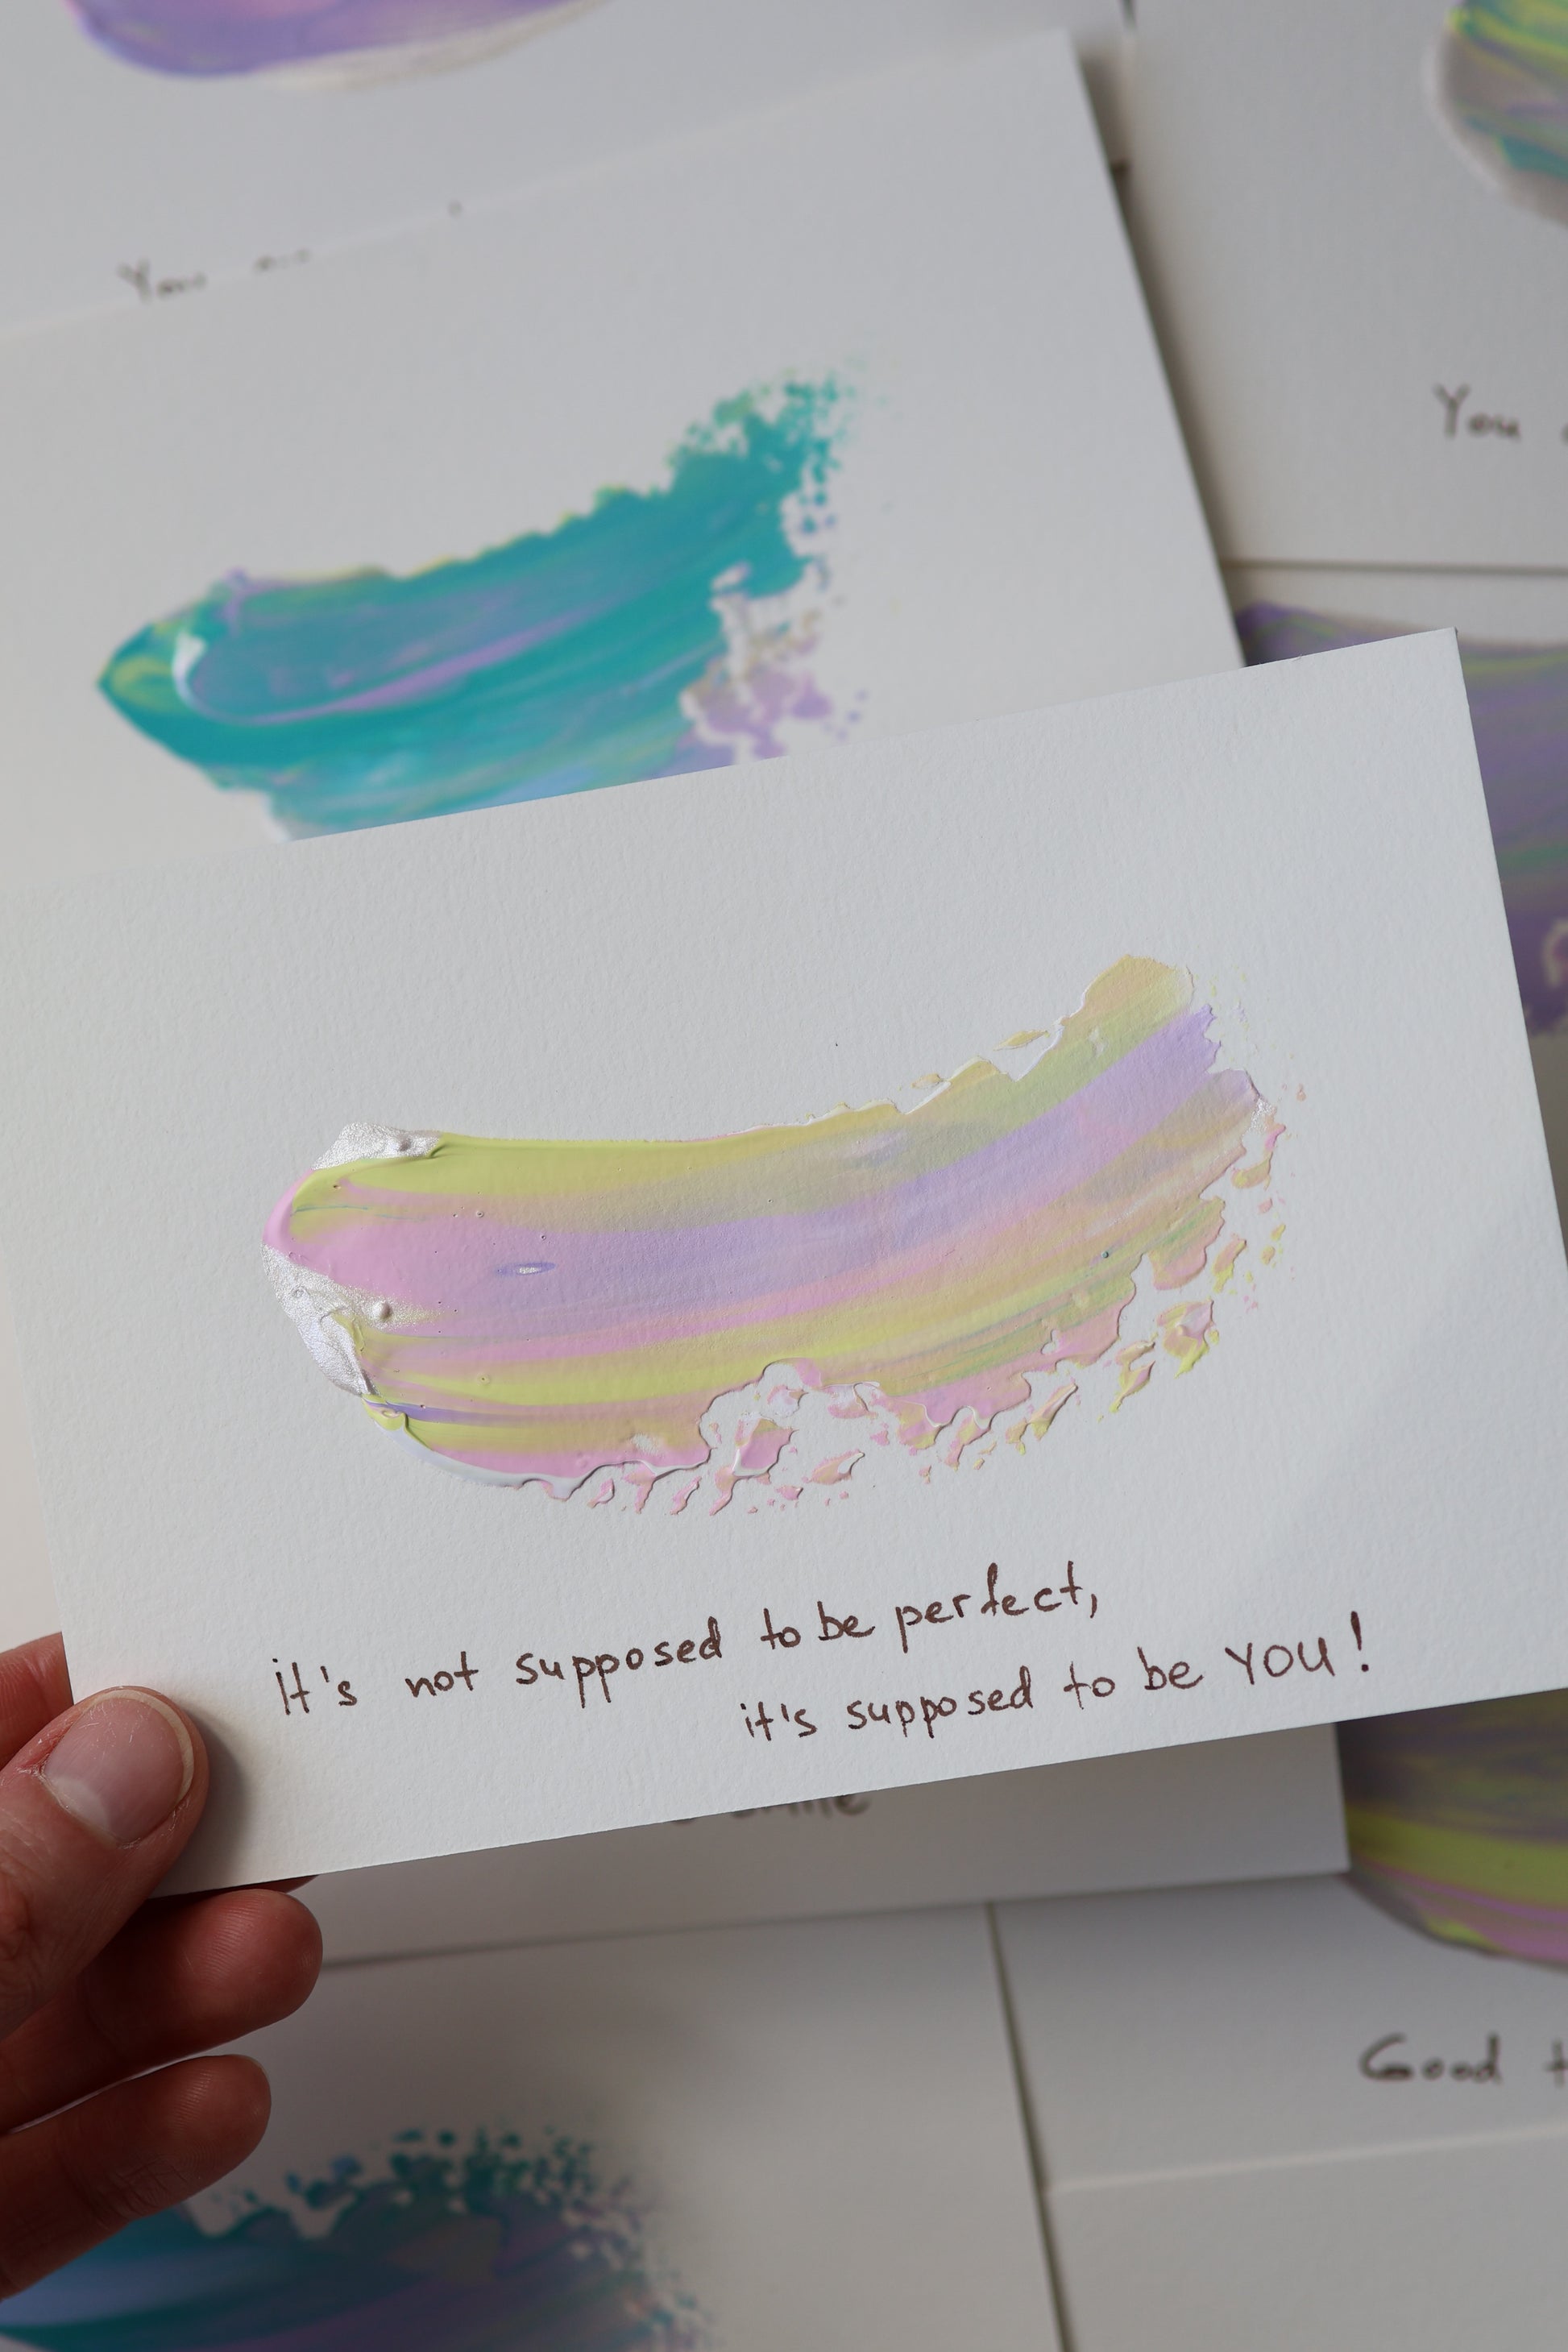 You
You
it's not supposed to be perfect,
it's supposed to be YOU!
Good